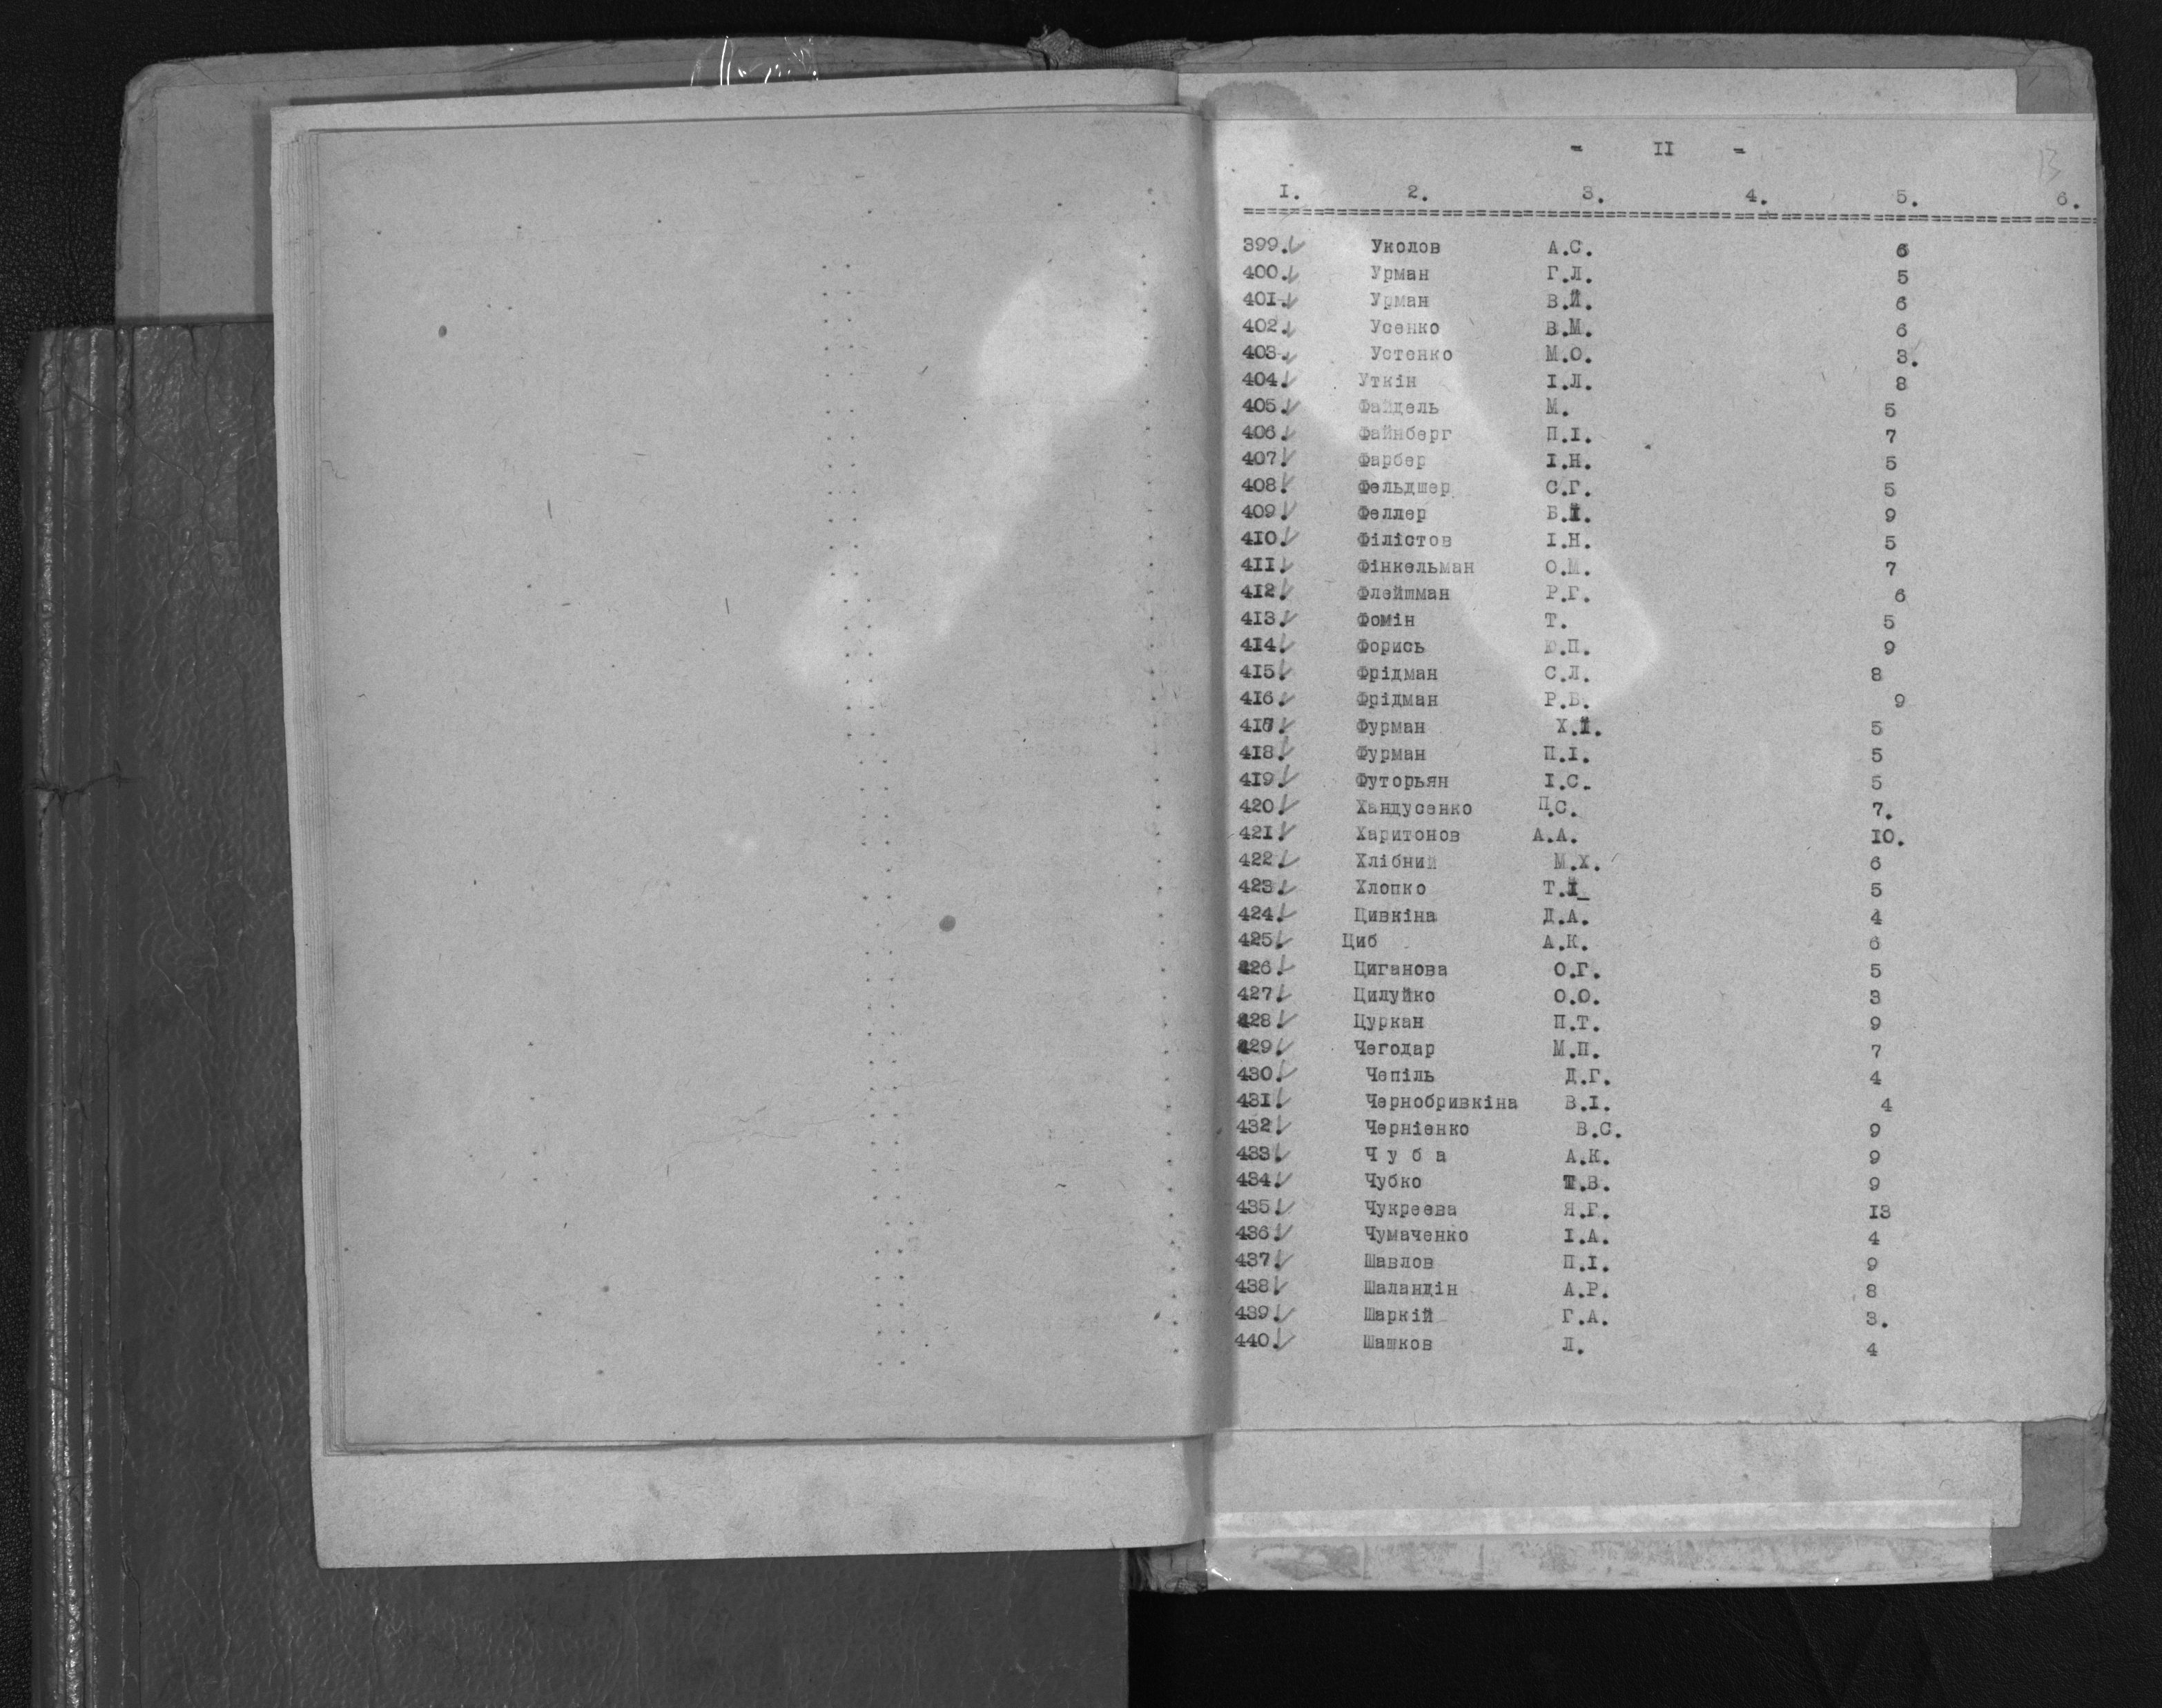 - II -
13
I. 2. 3. 4. 5. 6.
399. Уколов А.С. 6
400. Урман Г.Л. 5
401. Урман В.Й. 6
402. Усенко В.М. 6
403. Устенко М.О. 3.
404. Уткін І.Л. 8
405. Файдель М. 5
406. Файнберг П.І. 7
407. Фарбер І.Н. 5
408. Фельдшер С.Г. 5
409. Феллер Б.Й. 9
410. Філістов І.Н. 5
411. Фінкельман О.М. 7
412. Флейшман Р.Г. 6
413. Фомін Т. 5
414. Форись Ю.П. 9
415. Фрідман С.Л. 8
416. Фрідман Р.В. 9
417. Фурман Х.Й. 5
418. Фурман П.І. 5
419. Футорьян І.С. 5
420. Хандусенко П.С. 7.
421. Харитонов А.А. 10.
422. Хлібний М.Х. 6
423. Хлопко Т.Й 5
424. Цивкіна Д.А. 4
425. Циб А.К. 6
426. Циганова О.Г. 5
427. Цилуйко О.О. 3
428. Цуркан П.Т. 9
429. Чегодар М.П. 7
430. Чепіль Д.Г. 4
431. Чернобривкіна В.І. 4
432. Черніенко В.С. 9
433. Ч у б а А.К. 9
434. Чубко Т.В. 9
435. Чукреева Я.Г. 13
436. Чумаченко І.А. 4
437. Шавлов П.І. 9
438. Шаландін А.Р. 8
439. Шаркій Г.А. 3.
440. Шашков Л. 4